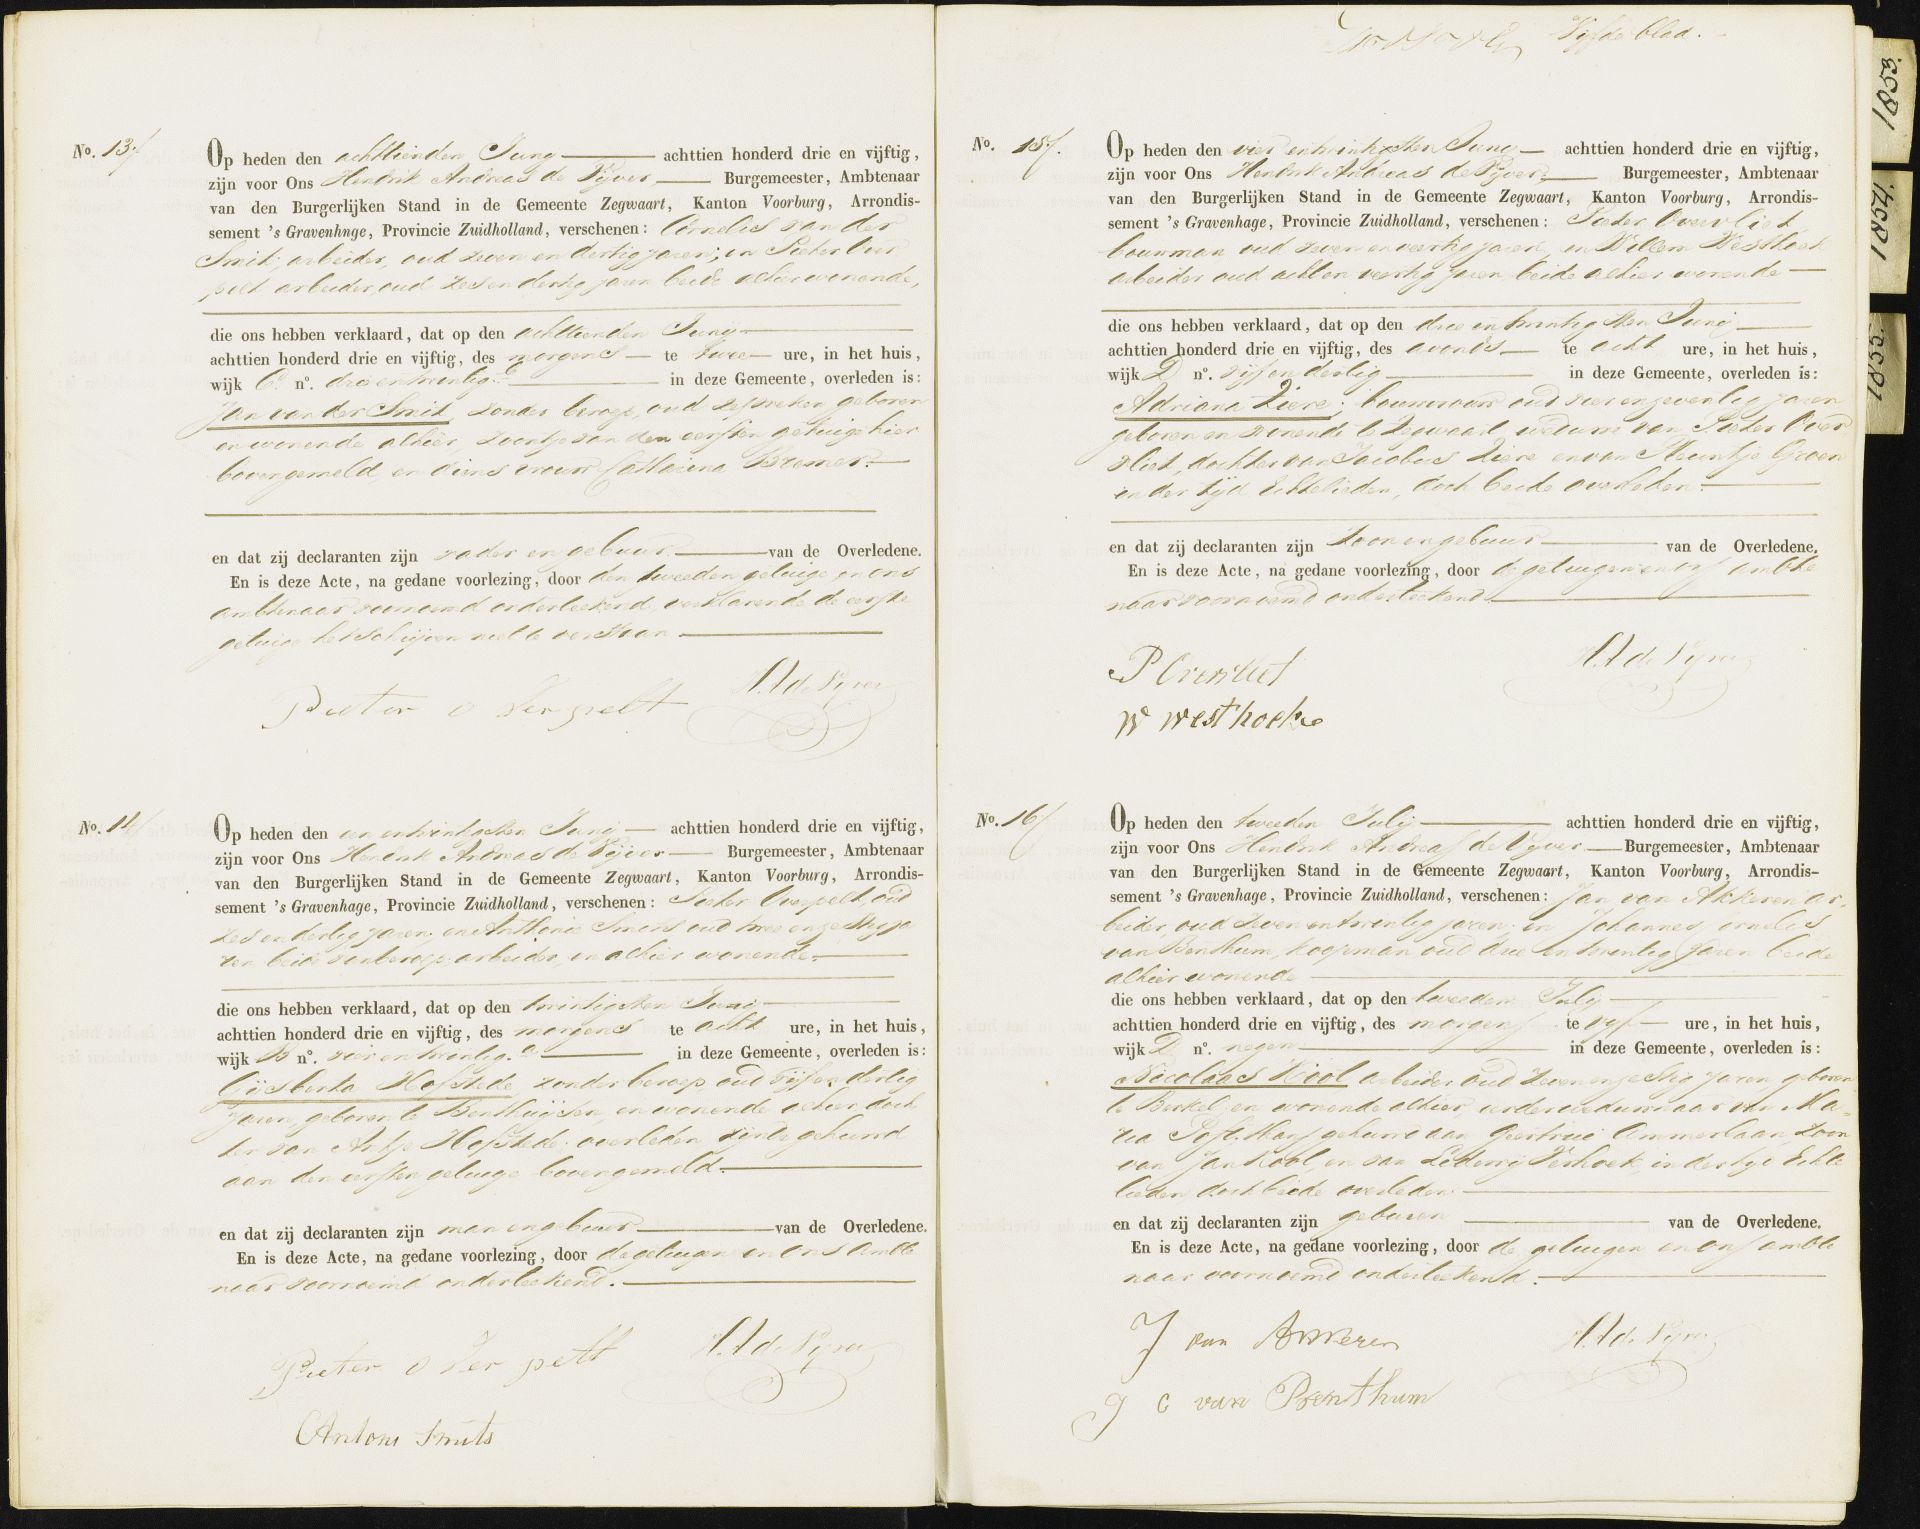 No. 13
Op heden den achttienden Junij achttien honderd drie en vijftig,
zijn voor Ons Hendrik Andreas de Vijver Burgemeester, Ambtenaar
van den Burgerlijken Stand in de Gemeente Zegwaart, Kanton Voorburg, Arrondis-
sement 's Gravenhnge, Provincie Zuidholland, verschenen: Cornelis van der
Smit, arbeider, oud zeven en dertig jaren, en Pieter Over
pelt arbeider, oud zes en dertig jaren beide alhier wonende,
die ons hebben verklaard, dat op den achttienden Junij
achttien honderd drie en vijftig, des morgens te twee ure, in het huis,
wijk C no. drie en twintig in deze Gemeente, overleden is:
Jan van der Smit, zonder beroep, oud zes weken, geboren
en wonende alhier, zoontje van den eersten getuige hier
bovengemeld, en diens vrouw Catharina Bremer.
en dat zij declaranten zijn vader en gebuur van de Overledene.
En is deze Acte, na gedane voorlezing, door den tweeden getuige en ons
ambtenaar voornoemd onderteekend, verklarende de eerste
getuige het schrijven niet te verstaan
H. A de Vyver
Pieter Over pelt
No. 14
Op heden den een en twintigsten Junij achttien honderd drie en vijftig,
zijn voor Ons Hendrik Andreas de Vijver Burgemeester, Ambtenaar
van den Burgerlijken Stand in de Gemeente Zegwaart, Kanton Voorburg, Arrondis-
sement 's Gravenhage, Provincie Zuidholland, verschenen: Pieter Overpelt, oud
zes en dertig jaren en Anthonie Smits oud twee en zestig ja
ren beide van beroep arbeider, en alhier wonende
die ons hebben verklaard, dat op den twintigsten Junij
achttien honderd drie en vijftig, des morgens te acht ure, in het huis,
wijk B no. vier en twintig a in deze Gemeente, overleden is:
Gijsberta Hofstede, zonder beroep oud vijf en dertig
Jaren, geboren te Benthuizen, en wonende alhier doch
ter van Antje Hofstede overleden zijnde gehuwd
aan den eersten getuige bovengemeld.
en dat zij declaranten zijn man en gebuur van de Overledene.
En is deze Acte, na gedane voorlezing, door de getuigen en ons ambte
naar voornoemd onderteekend.
H. A de Vyver
Pieter Over pelt
Antoni Smits
Vijfde blad.
No. 15
Op heden den vier en twintigsten Junij achttien honderd drie en vijftig,
zijn voor Ons Hendrik Andreas de Vijver Burgemeester, Ambtenaar
van den Burgerlijken Stand in de Gemeente Zegwaart, Kanton Voorburg, Arrondis-
sement 's Gravenhage, Provincie Zuidholland, verschenen: Pieter Overvliet
bouwman oud zeven en veertig jaren, en Willem Westhoek
arbeider oud acht en veertig jaren beide alhier wonende
die ons hebben verklaard, dat op den drie en twintigsten Junij
achttien honderd drie en vijftig, des avonds te acht ure, in het huis,
wijk D no. vijf en dertig in deze Gemeente, overleden is:
Adriana Ziere, bouwvrouw oud vier en zeventig jaren
geboren en wonende te Zegwaart weduwe van Pieter Over
vliet, dochter van Jacobus Ziere en van Neuntje Groen
in der tijd Echtelieden, doch beide overleden.
en dat zij declaranten zijn zoon en gebuur van de Overledene.
En is deze Acte, na gedane voorlezing, door de getuigen en ons ambte
naar voornoemd onderteekend
H. A de Vyver
P Overvliet
W Westhoek
No. 16
Op heden den tweeden Julij achttien honderd drie en vijftig,
zijn voor Ons Hendrik Andreas de Vijver Burgemeester, Ambtenaar
van den Burgerlijken Stand in de Gemeente Zegwaart, Kanton Voorburg, Arrondis-
sement 's Gravenhage, Provincie Zuidholland, verschenen: Jan van Akkeren ar-
beider, oud zeven en twintig jaren en Johannes Cornelis
van Benthum, koopman oud drie en twintig Jaren beide
alhier wonende
die ons hebben verklaard, dat op den tweeden July
achttien honderd drie en vijftig, des morgens te vijf ure, in het huis,
wijk D no. negen in deze Gemeente, overleden is:
Nicolaas Kool arbeider oud zeven en zestig jaren geboren
te Berkel, en wonende alhier, eerder weduwnaar van Ma-
ria Post. thans gehuwd aan Geertrui Ammerlaan, zoon
van Jan Kool, en van Verhoek, in der tijd Echte
lieden doch beide overleden.
en dat zij declaranten zijn geburen van de Overledene.
En is deze Acte, na gedane voorlezing, door de getuigen en ons ambte
naar voornoemd onderteekend.
H. A de Vyver
J van Akkeren
J C van Benthum
1853.
1854.
1855.